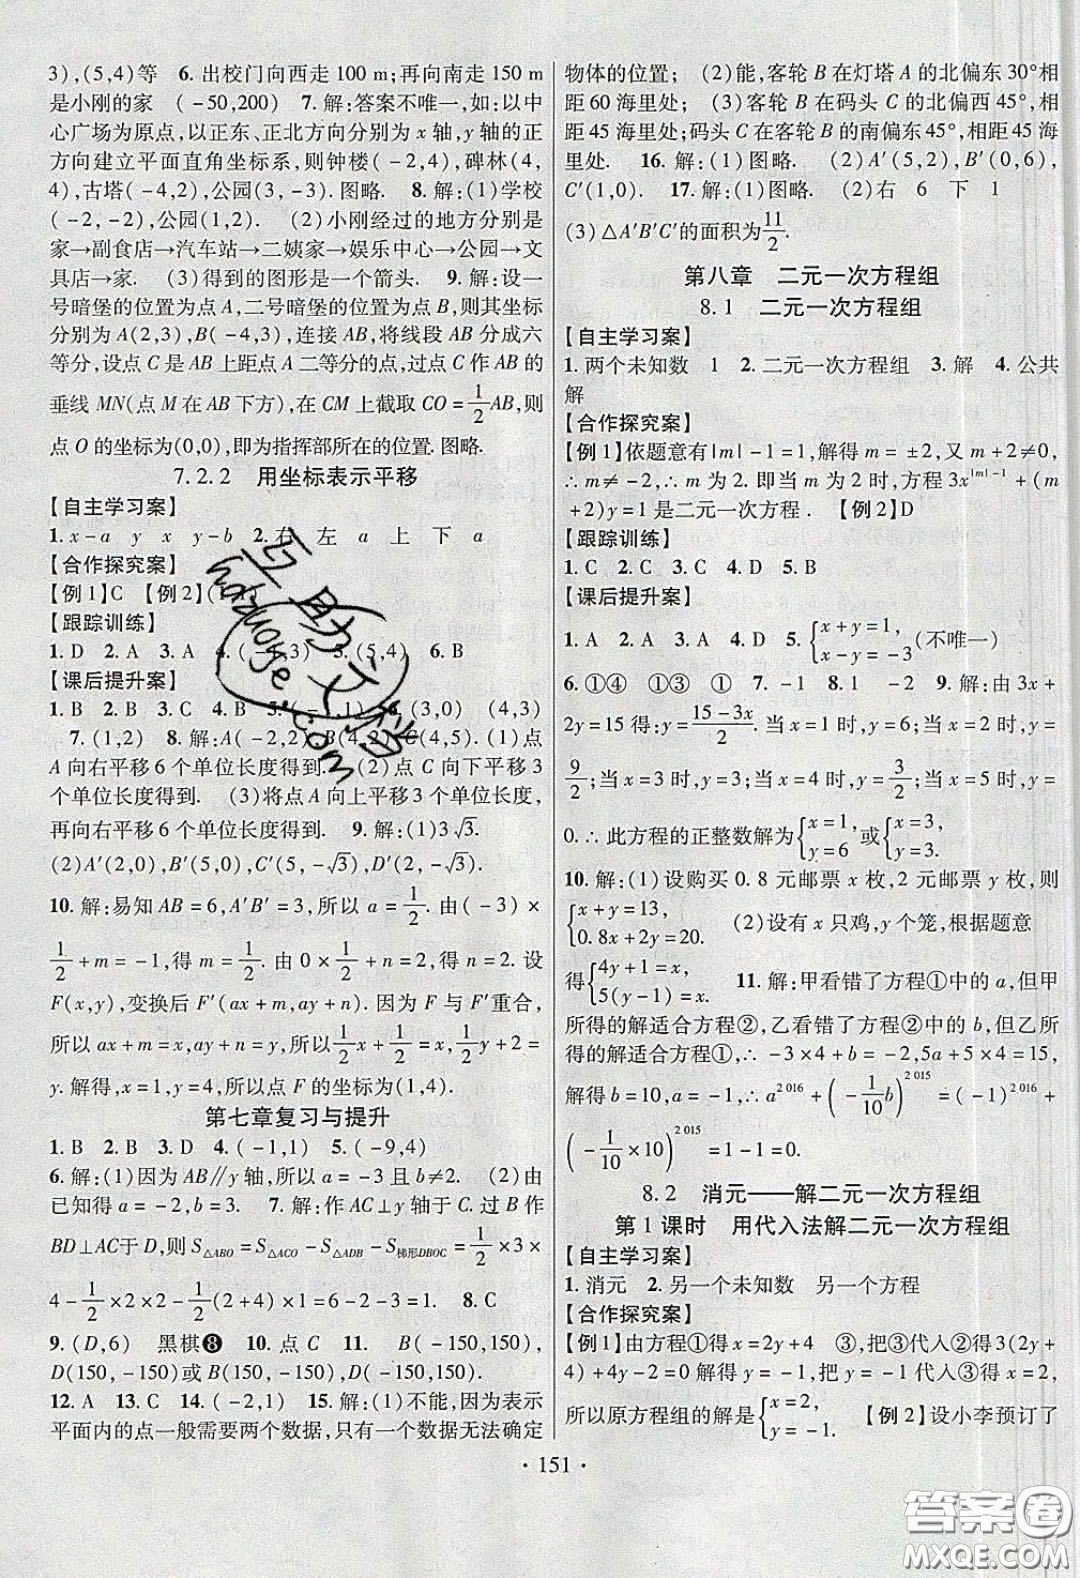 3),(5,4)等　6. 出校门向西走 100 m;再向南走 150 m
是小刚的家　(-50,200)　7. 解:答案不唯一,如:以中
心广场为原点,以正东、正北方向分别为 x 轴,y 轴的正
方向建立平面直角坐标系,则钟楼(-2,4),碑林(4,
4),古塔(-4,2),公园(3,-3).图略.　8. 解:(1)学校
(-2,-2),公园(1,2).　(2)小刚经过的地方分别是
家→副食店→汽车站→二姨家→娱乐中心→公园→文
具店→家.　(3)得到的图形是一个箭头.　9. 解:设一
号暗堡的位置为点 A,二号暗堡的位置为点 B,则其坐标
分别为 A(2,3),B(-4,3),连接 AB,将线段 AB 分成六
等分,设点 C 是 AB 上距点 A 二等分的点,过点 C 作 AB 的
垂线 MN(点 M 在 AB 下方),在 CM 上截取 CO=1/2AB,则
点 O 的坐标为(0,0),即为指挥部所在的位置.图略.
7.2.2　用坐标表示平移
【自主学习案】
1. x-a　y　x　y-b　2. 右　左　a　上　下　a
【合作探究案】
【例 1】C　【例 2】(
【跟踪训练】
1. D　2. A　3. A　4. (　3)　5. (5,4)　6. B
【课后提升案】
1. B　2. B　3. D　4. B　5. -1　1)　6. (3,0)　(4,3)
7. (1,2)　8. 解:A(-2,2),B(4,2),C(4,5).(1)点
A 向右平移 6 个单位长度得到.　(2)点 C 向下平移 3
个单位长度得到.　(3)将点 A 向上平移 3 个单位长度,
再向右平移 6 个单位长度得到.　9. 解:(1)3√3.
(2)A′(2,0),B′(5,0),C′(5,-√3),D′(2,-√3).
10. 解:易知 AB=6,A′B′=3,所以 a=1/2.由(-3)×
1/2+m=-1,得 m=1/2.由 0×1/2+n=2,得 n=2.设
F(x,y),变换后 F′(ax+m,ay+n).因为 F 与 F′重合,
所以 ax+m=x,ay+n=y.所以1/2x+1/2=x,1/2y+2=
y.解得,x=1,y=4,所以点 F 的坐标为(1,4).
第七章复习与提升
1. B　2. B　3. D　4. (-1,1)　5. (-9,4)
6. 解:(1)因为 AB∥y 轴,所以 a=-3 且 b≠2.　(2)由
已知得 a=-2,b=-2.　7. 解:作 AC⊥y 轴于 C.过 B 作
BD⊥AC 于 D,则 S△ABO=S△ACO-S△ADB-S梯形DBOC=1/2×3×
4-1/2×2×2-1/2(2+4)×1=6-2-3=1.　8. C
9. (D,6)　黑棋❽　10. 点 C　11. B(-150,150),
D(150,-150)或 B(150,150),D(-150,-150)
12. A　13. C　14. (-2,1)　15. 解:(1)不能,因为表示
平面内的点一般需要两个数据,只有一个数据无法确定
物体的位置;　(2)能,客轮 B 在灯塔 A 的北偏东 30°相
距 60 海里处;　(3)客轮 B 在码头 C 的北偏西 45°,相
距 45 海里处;码头 C 在客轮 B 的南偏东 45°,相距 45 海
里处.　16. 解:(1)图略.　(2)A′(5,2),B′(0,6),
C′(1,0).　17. 解:(1)图略.　(2)右　6　下　1
(3)△A′B′C′的面积为11/2.
第八章　二元一次方程组
8.1　二元一次方程组
【自主学习案】
1. 两个未知数　1　2. 二元一次方程组　3. 解　4. 公共
解
【合作探究案】
【例 1】依题意有|m|-1=1,解得 m=±2,又 m+2≠0,
∴m≠-2,∴m=2.即当 m=2 时,方程 3x^(|m|-1)+(m
+2)y=1 是二元一次方程.　【例 2】D
【跟踪训练】
1. C　2. C　3. D　4. D　5. B
【课后提升案】
1. A　2. A　3. A　4. D　5. {x+y=1, x-y=-3(不唯一)
6. ①④　①③　①　7. -1　8. 1　-2　9. 解:由 3x+
2y=15 得:y=(15-3x)/2.当 x=1 时,y=6;当 x=2 时,y=
9/2;当 x=3 时,y=3;当 x=4 时,y=3/2;当 x=5 时,y=
0.∴此方程的正整数解为{x=1, y=6或{x=3, y=3.
10. 解:(1)设购买 0.8 元邮票 x 枚,2 元邮票 y 枚,则
{x+y=13, 0.8x+2y=20.　(2)设有 x 只鸡,y 个笼,根据题意
得{4y+1=x, 5(y-1)=x.　11. 解:甲看错了方程①中的 a,但甲
所得的解适合方程②,乙看错了方程②中的 b,但乙所
得的解适合方程①,∴-3×4+b=-2,5a+5×4=15,
解得 b=10,a=-1,∴a^2016+(-1/10b)^2015=(-1)^2016+
(-1/10×10)^2015=1-1=0.
8.2　消元——解二元一次方程组
第 1 课时　用代入法解二元一次方程组
【自主学习案】
1. 消元　2. 另一个未知数　另一个方程
【合作探究案】
【例 1】由方程①得 x=2y+4　③,把③代入②得 3(2y+
4)+4y-2=0 解得 y=-1,把 y=-1 代入③得 x=2,
所以原方程组的解是{x=2, y=-1.　【例 2】设小李预订了
· 151 ·
互助文档
hdzuoye.com
答案圈
MXQE.COM